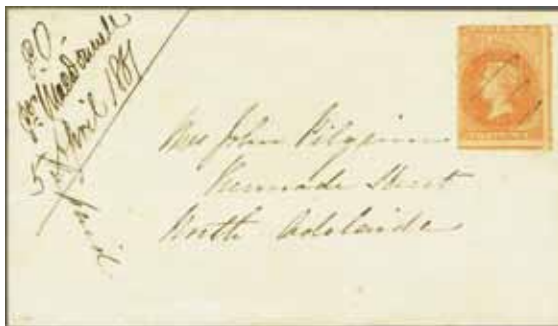 P.O.
Macdonnell
5 April 1881
Mrs John Pilgrim
Kermode Street
North Adelaide